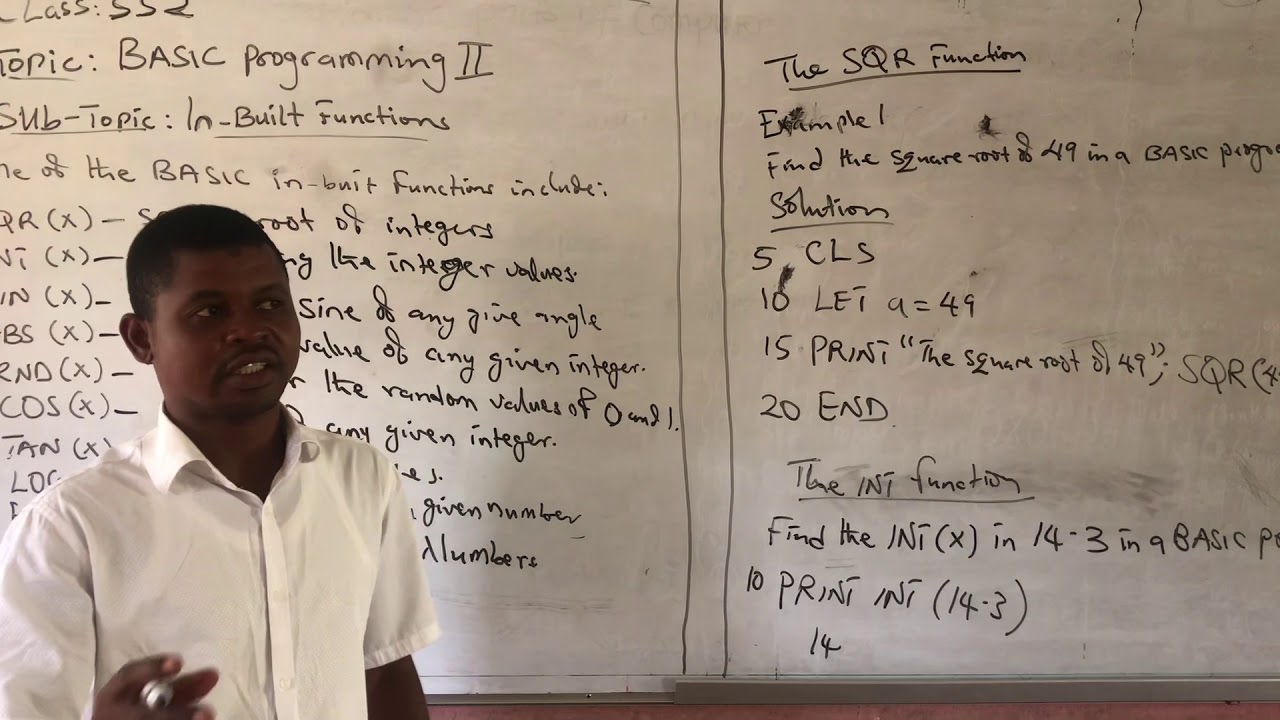 CLass: SS2
Topic: BASIC programming II
SUb-Topic: In-Built Functions
of the BASIC in-buit functions include:
QR (x) – root of integers
NT (x) – the integer values.
IN (x) – Sine of any give angle
BS (x) – value of any given integer.
RND (x) – the random values of 0 and 1.
COS (x) – any given integer.
TAN (x)
LOG
given number
Numbers
The SQR Function
Example 1
Find the square root of 49 in a BASIC
Solution
5 CLS
10 LET a = 49
15 PRINT "The square root of 49"; SQR (4
20 END
The INT function
Find the INT(x) in 14.3 in a BASIC
10 PRINT INT (14.3)
14